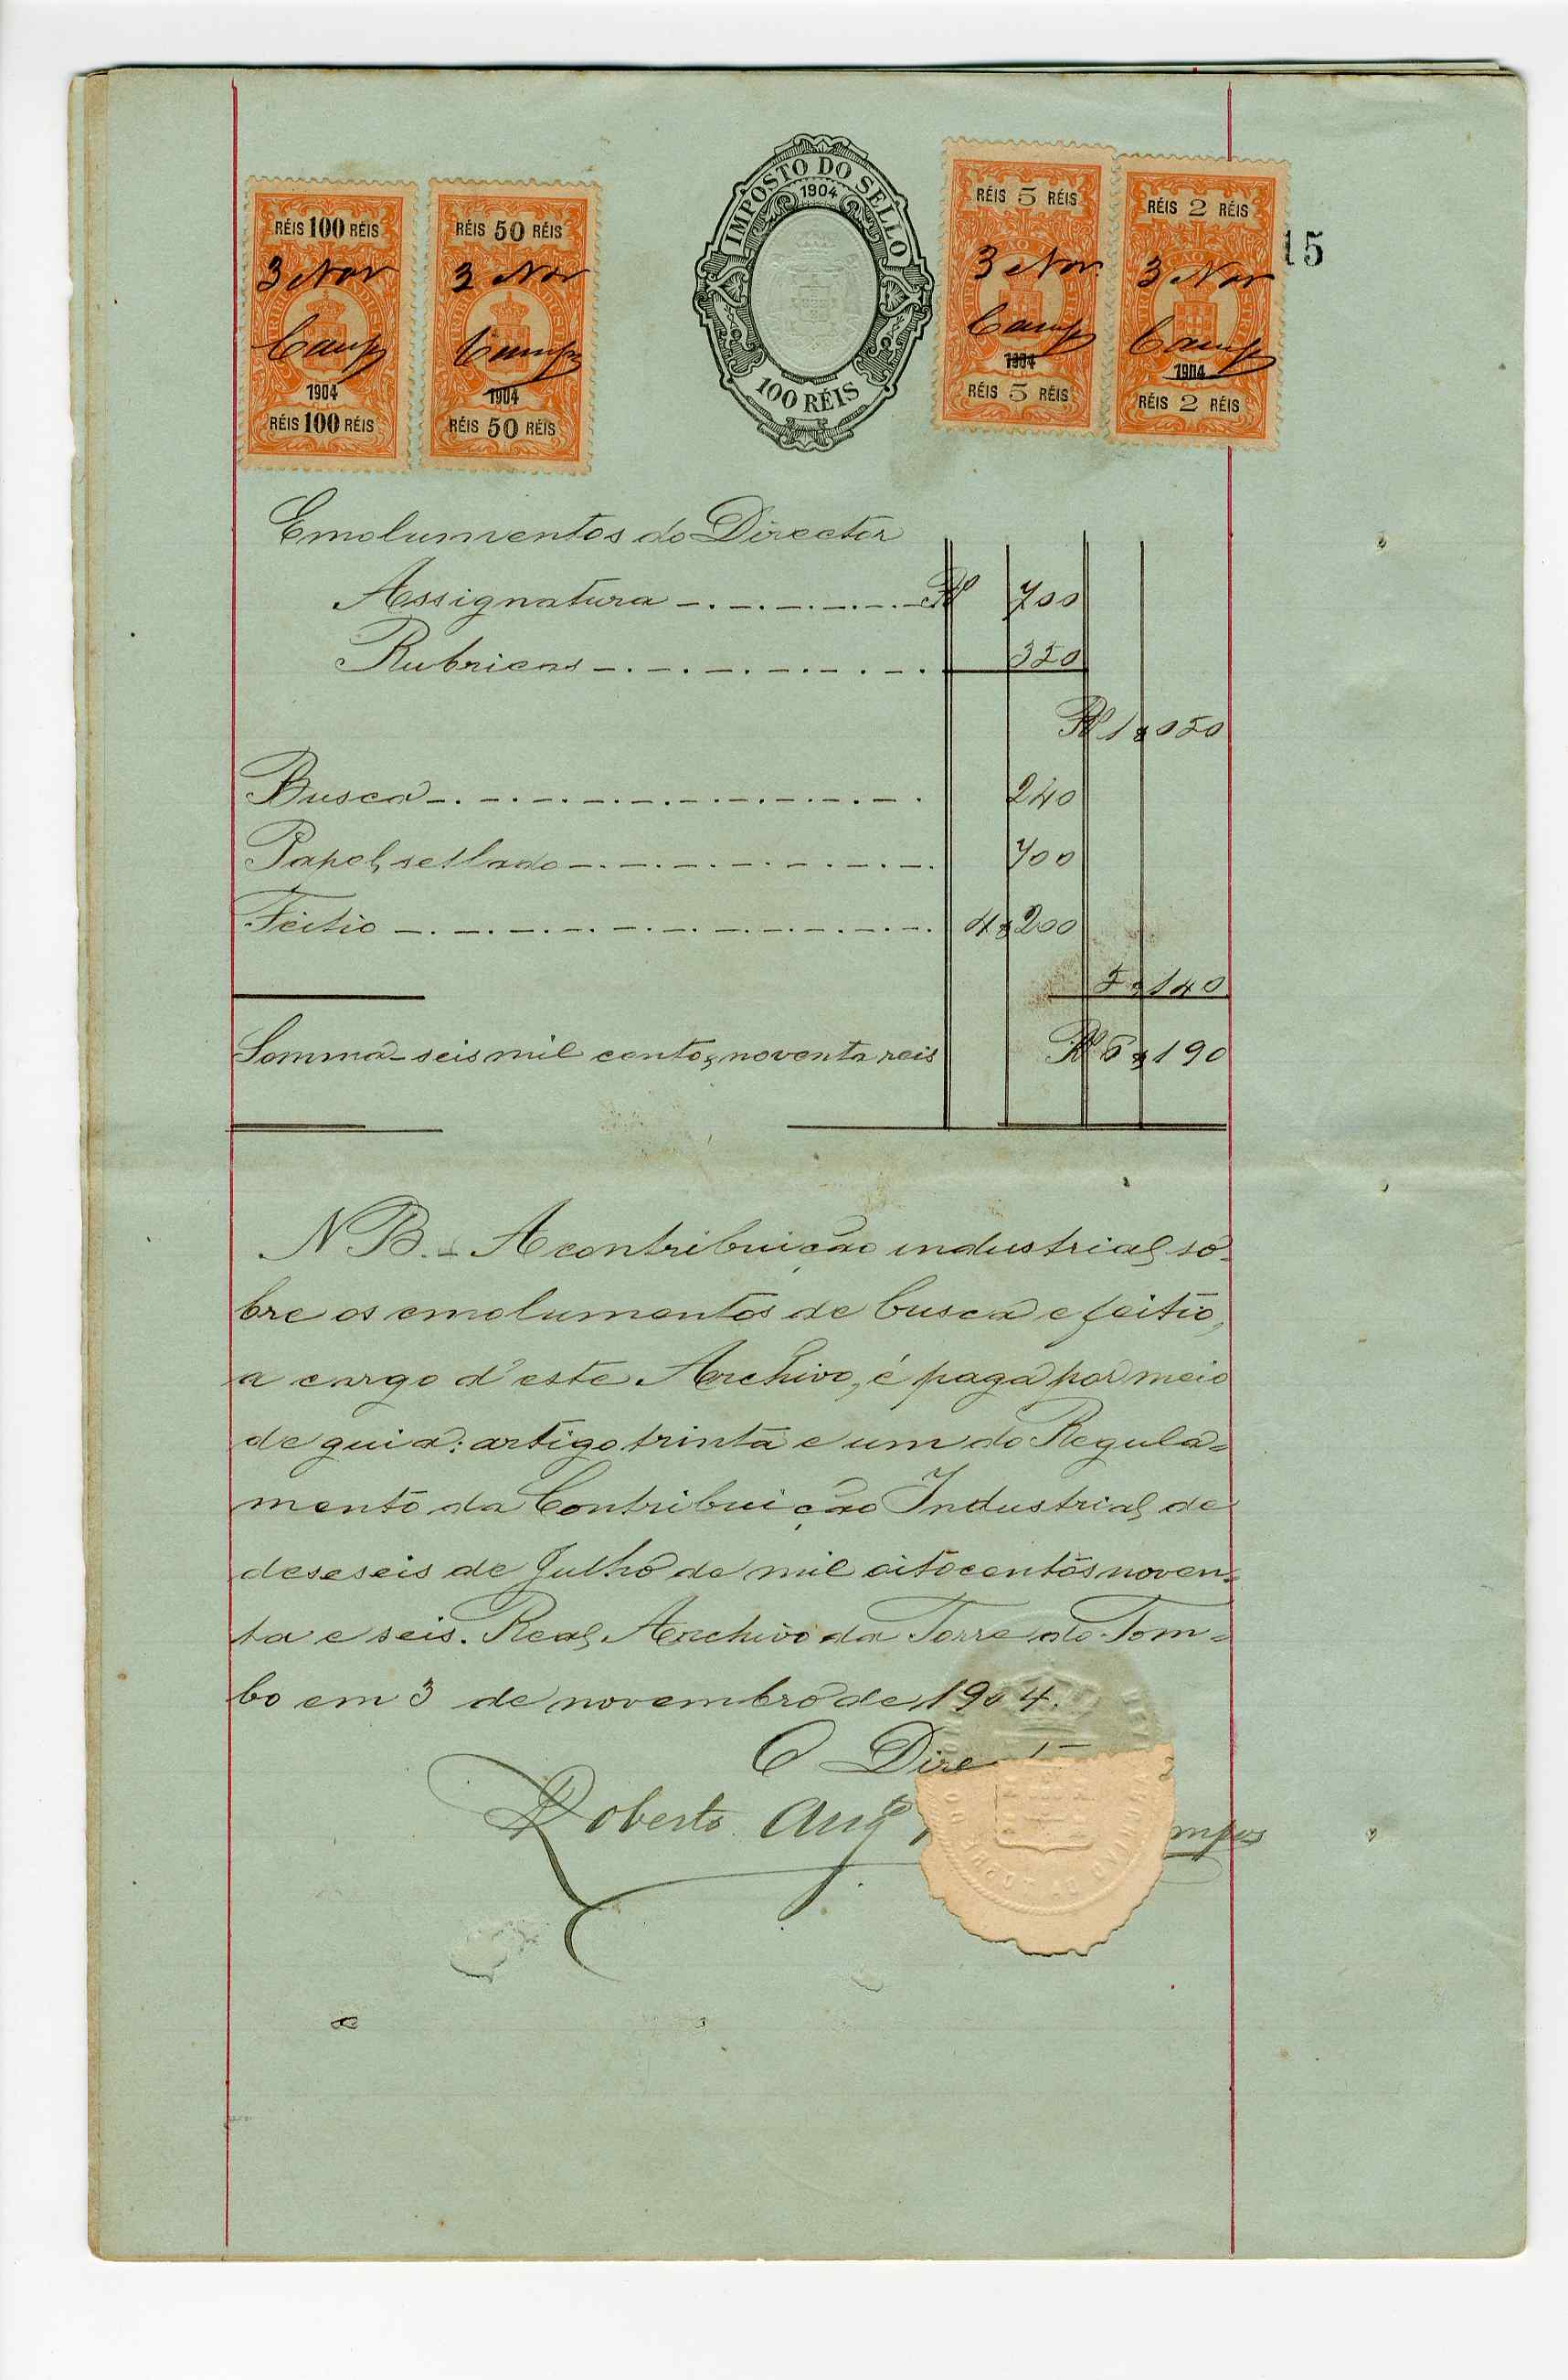 RÉIS 100 RÉIS
3 Nov
Camp
1904
RÉIS 100 RÉIS
RÉIS 50 RÉIS
3 Nov
Camps
1904
RÉIS 50 RÉIS
IMPOSTO DO SELLO
1904
100 RÉIS
RÉIS 5 RÉIS
3 Nov
Camp
1904
RÉIS 5 RÉIS
RÉIS 2 RÉIS
3 Nov
Camp
1904
RÉIS 2 RÉIS
15
Emolumentos do Director
Assignatura R 700
Rubricas 350
R 1$050
Busca 240
Papel sellado 700
Feitio 4$200
5$140
Somma - seis mil cento e noventa reis R 6$190
NB. - A contribuição industrial so-
bre os emolumentos de busca e feitio,
a cargo d'este Archivo, é paga por meio
de guia: artigo trinta e um do Regula-
mento da Contribuição Industrial de
deseseis de Julho de mil oitocentos noven-
ta e seis. Real Archivo da Torre do Tom-
bo em 3 de novembro de 1904.
O Dire
Roberto Aug mpos